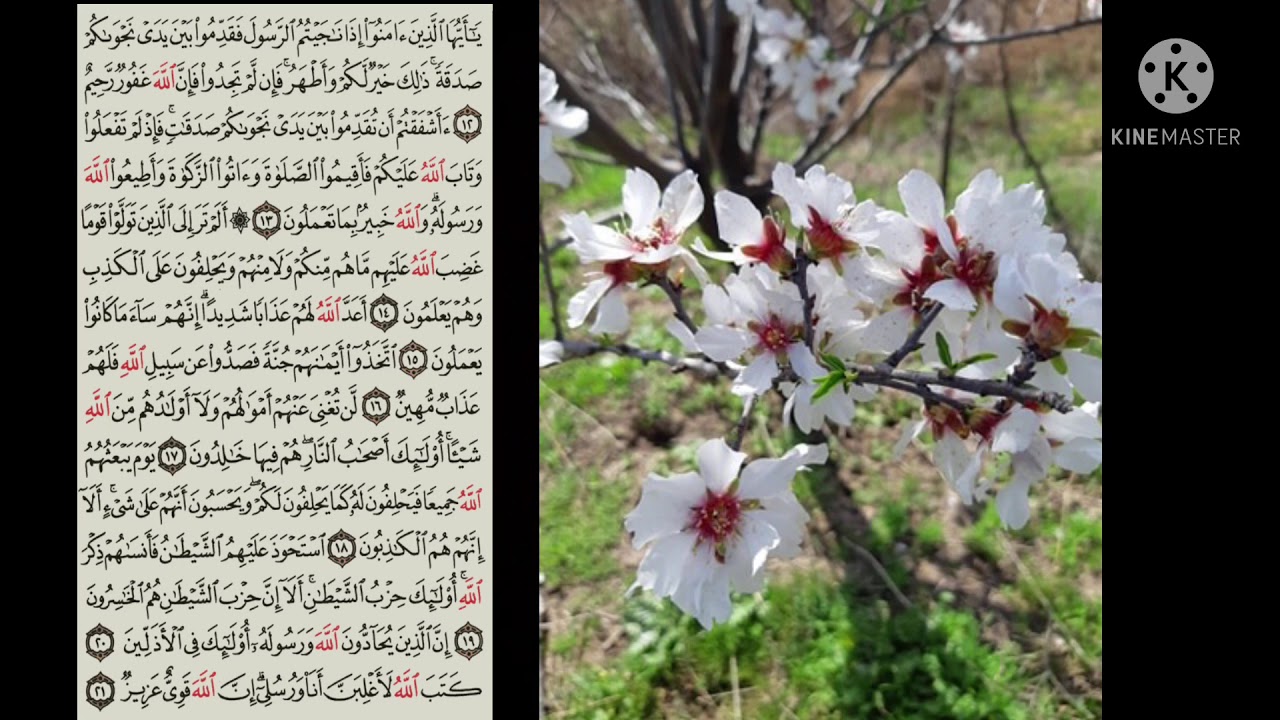 يَـٰٓأَيُّهَا ٱلَّذِينَ ءَامَنُوٓا۟ إِذَا نَـٰجَيْتُمُ ٱلرَّسُولَ فَقَدِّمُوا۟ بَيْنَ يَدَىْ نَجْوَىٰكُمْ
صَدَقَةً ۚ ذَٰلِكَ خَيْرٌ لَّكُمْ وَأَطْهَرُ ۚ فَإِن لَّمْ تَجِدُوا۟ فَإِنَّ ٱللَّهَ غَفُورٌ رَّحِيمٌ
١٢ ءَأَشْفَقْتُمْ أَن تُقَدِّمُوا۟ بَيْنَ يَدَىْ نَجْوَىٰكُمْ صَدَقَـٰتٍ ۚ فَإِذْ لَمْ تَفْعَلُوا۟
وَتَابَ ٱللَّهُ عَلَيْكُمْ فَأَقِيمُوا۟ ٱلصَّلَوٰةَ وَءَاتُوا۟ ٱلزَّكَوٰةَ وَأَطِيعُوا۟ ٱللَّهَ
وَرَسُولَهُۥ ۚ وَٱللَّهُ خَبِيرٌۢ بِمَا تَعْمَلُونَ ١٣ ۞ أَلَمْ تَرَ إِلَى ٱلَّذِينَ تَوَلَّوْا۟ قَوْمًا
غَضِبَ ٱللَّهُ عَلَيْهِم مَّا هُم مِّنكُمْ وَلَا مِنْهُمْ وَيَحْلِفُونَ عَلَى ٱلْكَذِبِ
وَهُمْ يَعْلَمُونَ ١٤ أَعَدَّ ٱللَّهُ لَهُمْ عَذَابًا شَدِيدًا ۖ إِنَّهُمْ سَآءَ مَا كَانُوا۟
يَعْمَلُونَ ١٥ ٱتَّخَذُوٓا۟ أَيْمَـٰنَهُمْ جُنَّةً فَصَدُّوا۟ عَن سَبِيلِ ٱللَّهِ فَلَهُمْ
عَذَابٌ مُّهِينٌ ١٦ لَّن تُغْنِىَ عَنْهُمْ أَمْوَٰلُهُمْ وَلَآ أَوْلَـٰدُهُم مِّنَ ٱللَّهِ
شَيْـًٔا ۚ أُو۟لَـٰٓئِكَ أَصْحَـٰبُ ٱلنَّارِ ۖ هُمْ فِيهَا خَـٰلِدُونَ ١٧ يَوْمَ يَبْعَثُهُمُ
ٱللَّهُ جَمِيعًا فَيَحْلِفُونَ لَهُۥ كَمَا يَحْلِفُونَ لَكُمْ ۖ وَيَحْسَبُونَ أَنَّهُمْ عَلَىٰ شَىْءٍ ۚ أَلَآ
إِنَّهُمْ هُمُ ٱلْكَـٰذِبُونَ ١٨ ٱسْتَحْوَذَ عَلَيْهِمُ ٱلشَّيْطَـٰنُ فَأَنسَىٰهُمْ ذِكْرَ
ٱللَّهِ ۚ أُو۟لَـٰٓئِكَ حِزْبُ ٱلشَّيْطَـٰنِ ۚ أَلَآ إِنَّ حِزْبَ ٱلشَّيْطَـٰنِ هُمُ ٱلْخَـٰسِرُونَ
١٩ إِنَّ ٱلَّذِينَ يُحَآدُّونَ ٱللَّهَ وَرَسُولَهُۥٓ أُو۟لَـٰٓئِكَ فِى ٱلْأَذَلِّينَ ٢٠
كَتَبَ ٱللَّهُ لَأَغْلِبَنَّ أَنَا۠ وَرُسُلِىٓ ۚ إِنَّ ٱللَّهَ قَوِىٌّ عَزِيزٌ ٢١
K
KINEMASTER